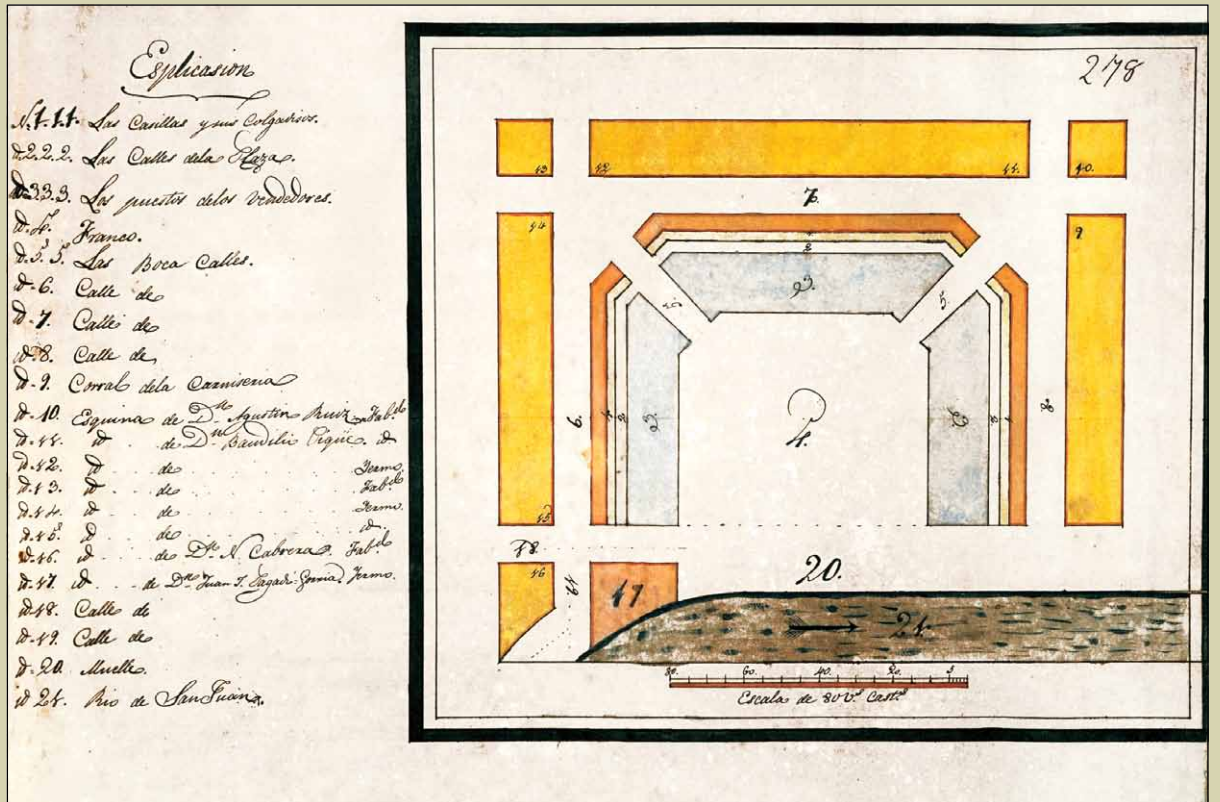 Esplicasion
N. 1.1.1. Las Casillas y sus Colgadisos.
id. 2.2.2. Las Calles dela Plaza.
id. 3.3.3. Los puestos delos Vendedores.
id. 4. Franco.
id. 5. 5. Las Boca Calles.
id. 6. Calle de
id. 7. Calle de
id. 8. Calle de
id. 9. Corral dela Carniseria
id. 10. Esquina de Dn. Agustin Ruiz Fab.do
id. 11. id de Dn. Baudilio id
id. 12. id de Yermo.
id. 13. id de Fab.do
id. 14. id de Yermo.
id. 15. id de id.
id. 16. id de Dn. N. Cabrera. Fab.do
id. 17. id de Dn. Juan Yermo.
id. 18. Calle de
id. 19. Calle de
id. 20. Muelle.
id 21. Rio de San Juan.
278
13 12 11 10.
7.
14 1 2 9
3.
5. 5.
6. 1 2 3 4. 3 2 1 8.
15
18
16 19 17 20.
21.
80. 60. 40. 20.
Escala de 80 v.s Cast.s